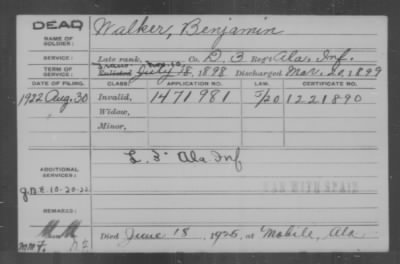 DEAD
NAME OF SOLDIER: Walker, Benjamin
SERVICE: Late rank, Co. D. 3 Reg't Ala. Inf.
TERM OF SERVICE: Enlisted July 18, 1898 Discharged Mar. 20, 1899
DATE OF FILING. CLASS. APPLICATION NO. LAW. CERTIFICATE NO.
1922 Aug. 30 Invalid, 1471981 5/20 1221890
Widow,
Minor,
ADDITIONAL SERVICES: L. 3" Ala Inf
WAR WITH SPAIN
10-20-22
REMARKS:
Died June 18, 1925, at Mobile, Ala.